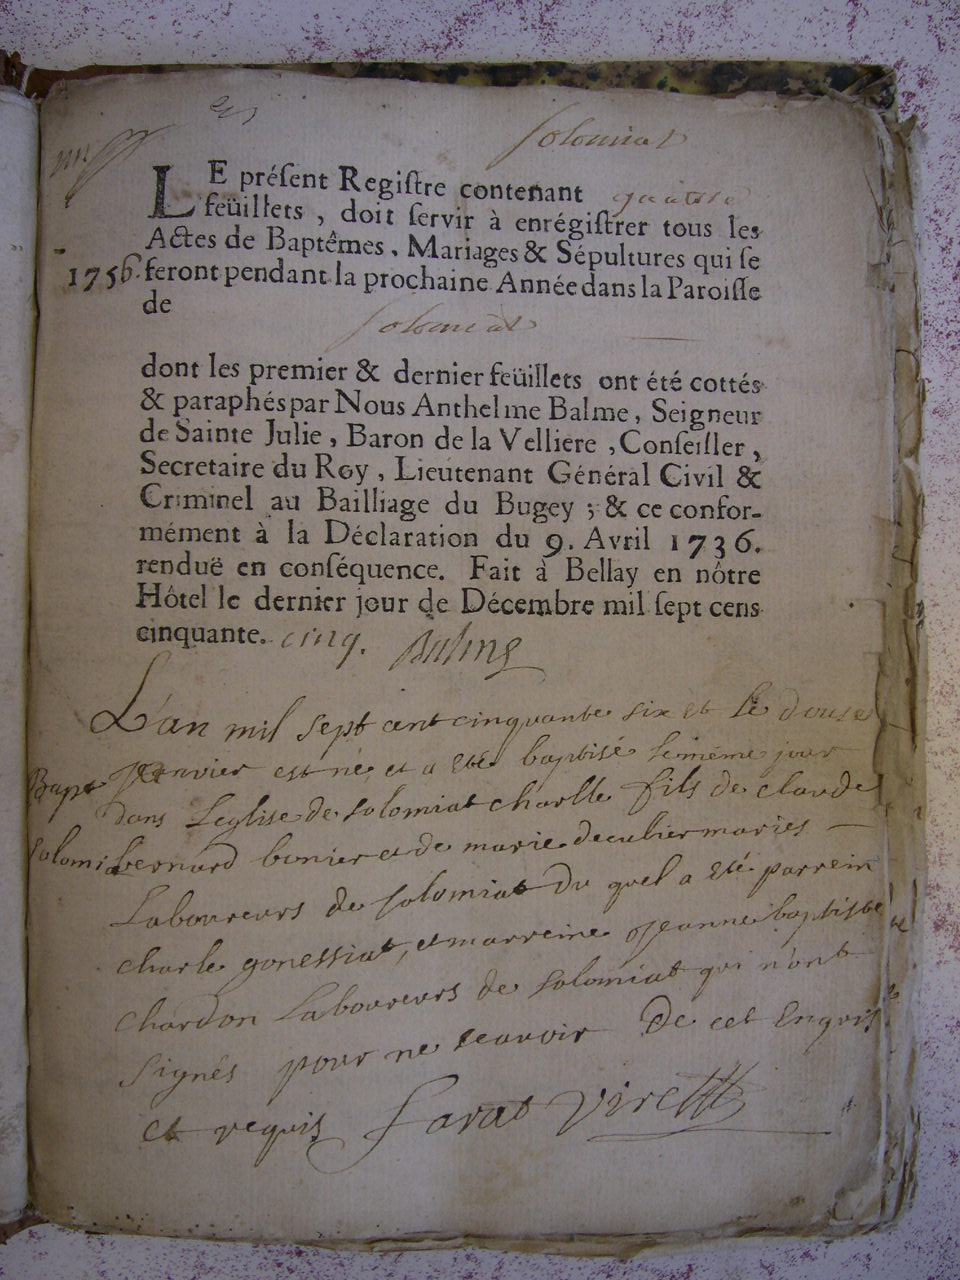 solomiat
LE préſent Regiſtre contenant quatre
feüillets, doit ſervir à enrégiſtrer tous les
Actes de Baptêmes, Mariages & Sépultures qui ſe
1756. feront pendant la prochaine Année dans la Paroiſſe
de
solomiat
dont les premier & dernier feüillets ont été cottés
& paraphés par Nous Anthelme Balme, Seigneur
de Sainte Julie, Baron de la Velliere, Conſeiller,
Secretaire du Roy, Lieutenant Général Civil &
Criminel au Bailliage du Bugey; & ce confor-
mément à la Déclaration du 9. Avril 1736.
renduë en conſéquence. Fait à Bellay en nôtre
Hôtel le dernier jour de Décembre mil ſept cens
cinquante. cinq. Balme
L'an mil sept cent cinquante six et le douse
Bapt janvier est né, et a eté baptisé le même jour
dans Leglise de solomiat charlle fils de claude
solomi bernard bonier et de marie decuhier mariés
Laboureurs de solomiat du quel a eté parrein
charle gonessiat, et marreine jeanne baptiste
chardon Laboureurs de solomiat qui n'ont
signés pour ne scavoir de cet Enquis
et requis farat vire